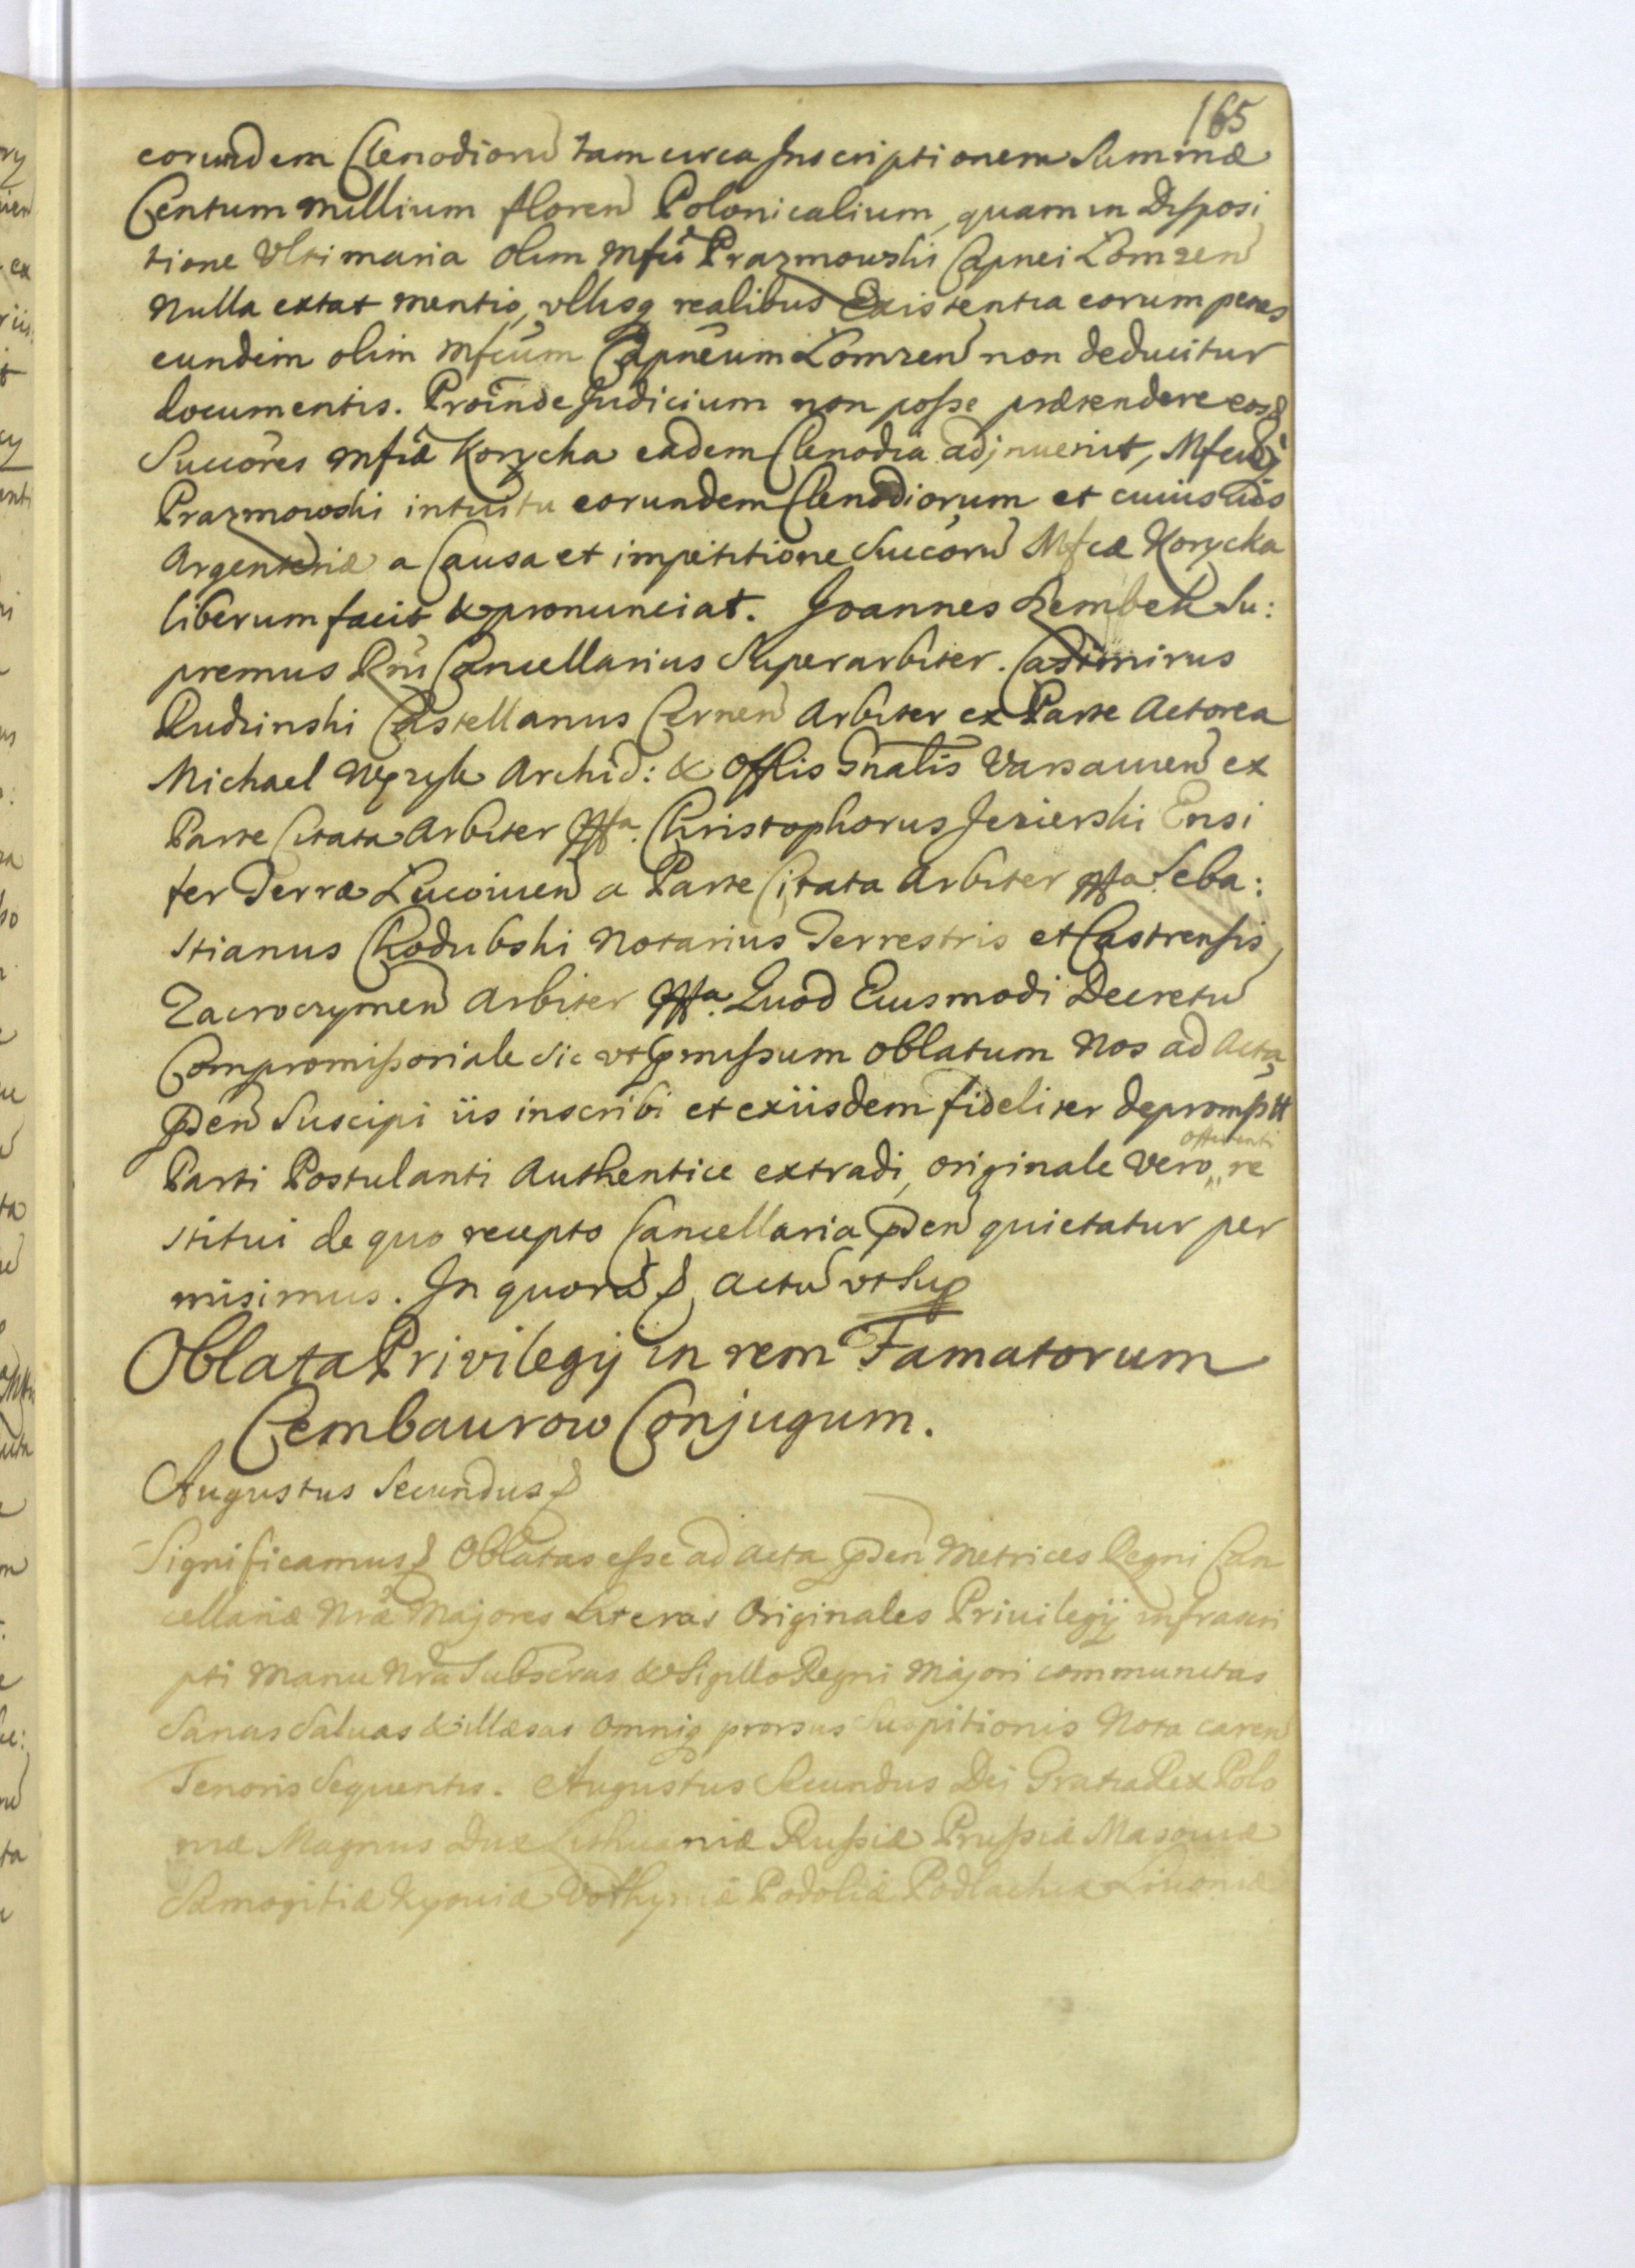 165
eorundem Clenodiorū tam circa Inscriptionem Summæ
Centum Millium floren Polonicalium, quam in Disposi
tione Vltimaria olim Mfci Prazmowski Capnei Lomzen
Nulla extat mentio, vllisq realibus Existentia eorum penes
eundem olim Mfcum Capneum Lomzen non deducitur
documentis. Proinde Judicium non posse prætendere eosd
Succores Mfcæ Korycka eadem Clenodia adjnuenit, Mfcum
Prazmowski intuitu eorundem Clenodiorum et cuiusuis
Argenteriæ a Causa et impetitione Succorū Mfcæ Korycka
liberum facit & pronunciat. Joannes Szembek Su:
premus Rni Cancellarius Superarbiter. Casimirus
Rudzinski Castellanus Cernen Arbiter ex Parte Actorea
Michael Archid: & Offlis Gnalis Varsauien ex
Parte Citata Arbiter Christophorus Jezierski Ensi
fer Terræ Lucouien a Parte Citata Arbiter Seba:
stianus Chodubski Notarius Terrestris et Castrensis
Zacroczymen Arbiter Quod Eiusmodi Decretū
Compromissoriale sic vt pmissum oblatum Nos ad Acta
pden Suscipi iis inscribi et exiisdem fideliter deprompt
offerenti
Parti Postulanti Authentice extradi, originale Vero,, re
stitui de quo recepto Cancellaria pden quietatur per
misimus. In quorū & Actū vt Sup
Oblata Privilegij in rem Famatorum
Cembaurow Conjugum.
Augustus Secundus &
Significamus & Oblatas esse ad acta pden Metrices Regni Can
cellariæ Nræ Majores Literas Originales Priuilegij infrascri
pti Manu Nra Subscras & Sigillo Regni Majori communitas
Sanas Saluas & illæsas omniq prorsus Suspitionis Nota caren
Tenoris Sequentis. Augustus Secundus Dei Gratia Rex Polo
niæ Magnus Dux Lithuaniæ Russiæ Prussiæ Masouiæ
Samogitiæ Kyouiæ Volhyniæ Podoliæ Podlachiæ Liuoniæ